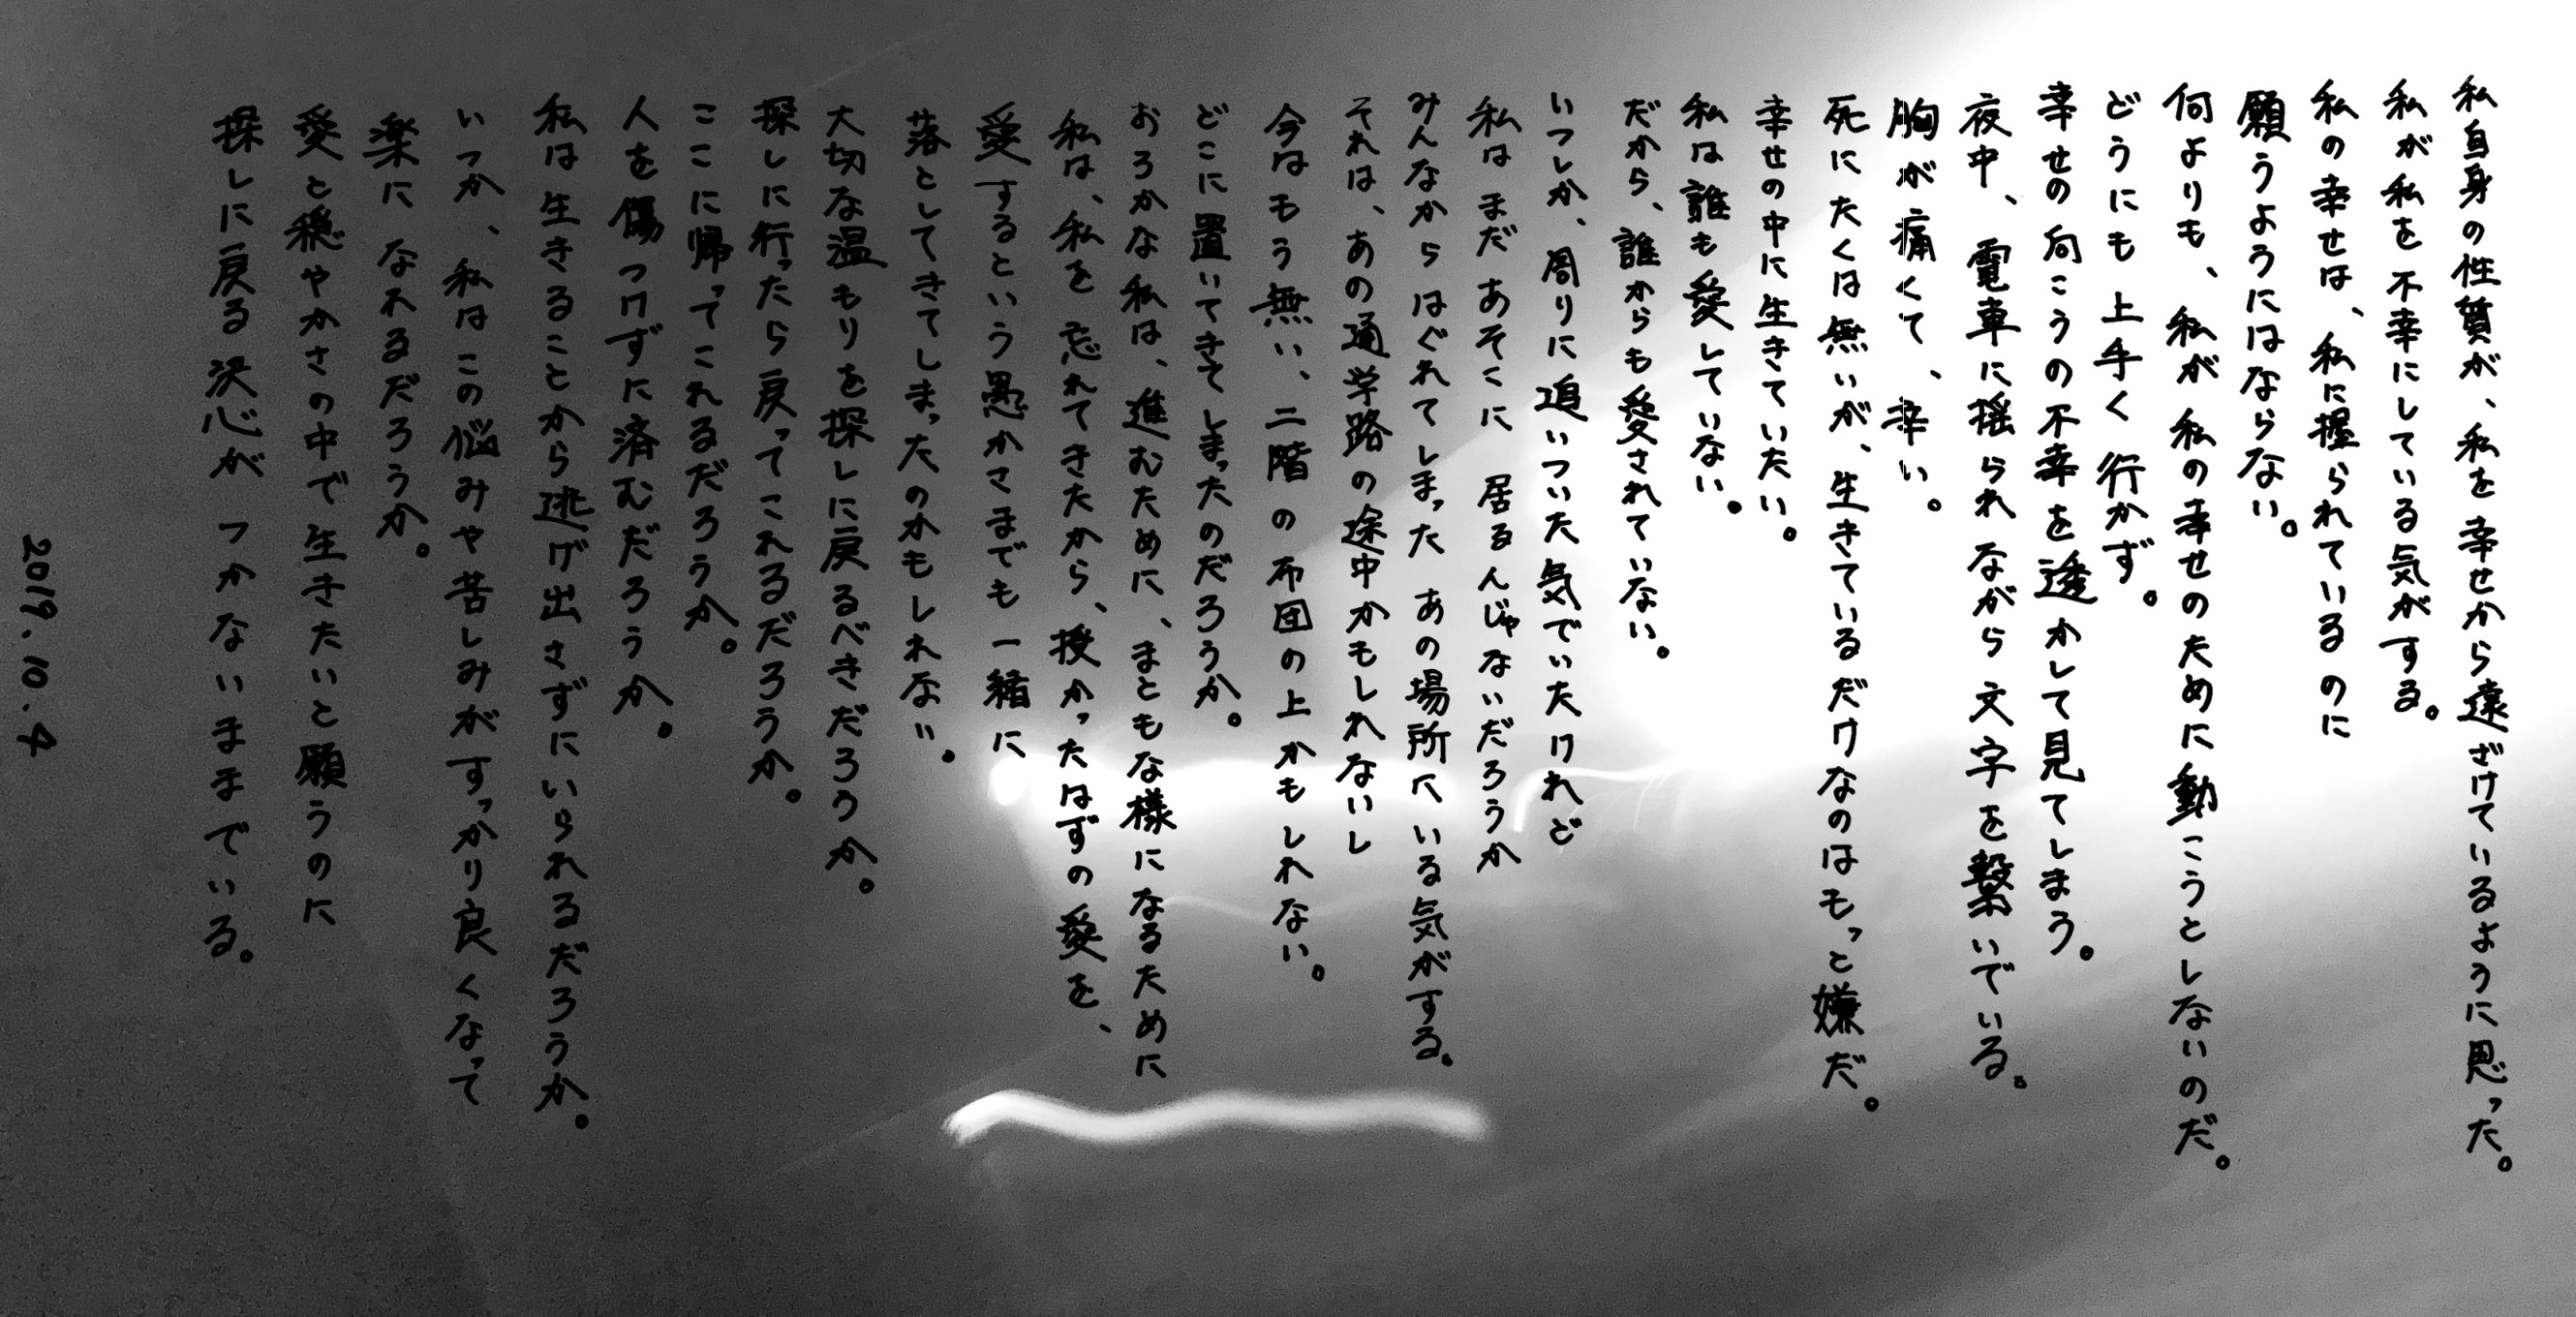 私自身の性質が、私を幸せから遠ざけているように思った。
私が私を不幸にしている気がする。
私の幸せは、私に握られているのに
願うようにはならない。
何よりも、私が私の幸せのために動こうとしないのだ。
どうにも上手く行かず。
幸せの向こうの不幸を透かして見てしまう。
夜中、電車に揺られながら文字を繋いでいる。
胸が痛くて、辛い。
死にたくは無いが、生きているだけなのはもっと嫌だ。
幸せの中に生きていたい。
私は誰も愛していない。
だから、誰からも愛されていない。
いつしか、周りに追いついた気でいたけれど
私はまだあそこに居るんじゃないだろうか
みんなからはぐれてしまったあの場所にいる気がする。
それは、あの通学路の途中かもしれないし
今はもう無い、二階の布団の上かもしれない。
どこに置いてきてしまったのだろうか。
おろかな私は、進むために、まともな様になるために
私は、私を忘れてきたから、授かったはずの愛を、
愛するという愚かさまでも一緒に
落としてきてしまったのかもしれない。
大切な温もりを探しに戻るべきだろうか。
探しに行ったら戻ってこれるだろうか。
ここに帰ってこれるだろうか。
人を傷つけずに済むだろうか。
私は生きることから逃げ出さずにいられるだろうか。
いつか、私はこの悩みや苦しみがすっかり良くなって
楽になれるだろうか。
愛と穏やかさの中で生きたいと願うのに
探しに戻る決心がつかないままでいる。
2019.10.4